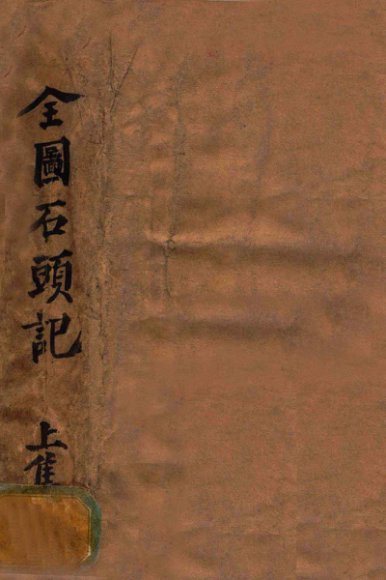 全圖石頭記
上